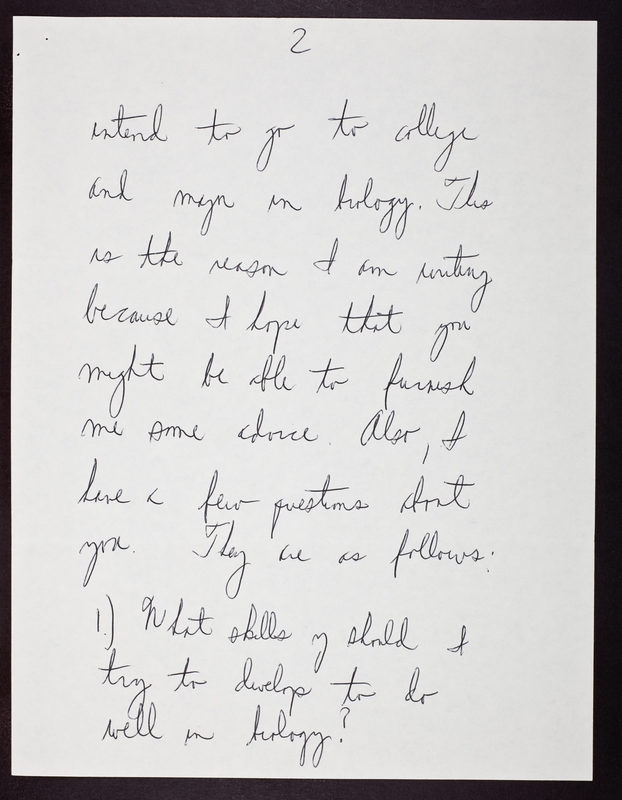 2
intend to go to college
and major in biology. This
is the reason I am writing
because I hope that you
might be able to furnish
me some advice. Also, I
have a few questions about
you. They are as follows:
1.) What skills should I
try to develop to do
well in biology?